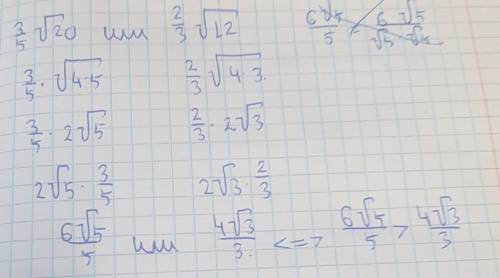 3/5 √20 или 2/3 √12
6√5/5 = 6/√5 √5/√5
3/5 · √4·5 2/3 √4·3
3/5 · 2√5 2/3 · 2√3
2√5 · 3/5 2√3 · 2/3
6√5/5 или 4√3/3. <=> 6√5/5 > 4√3/3